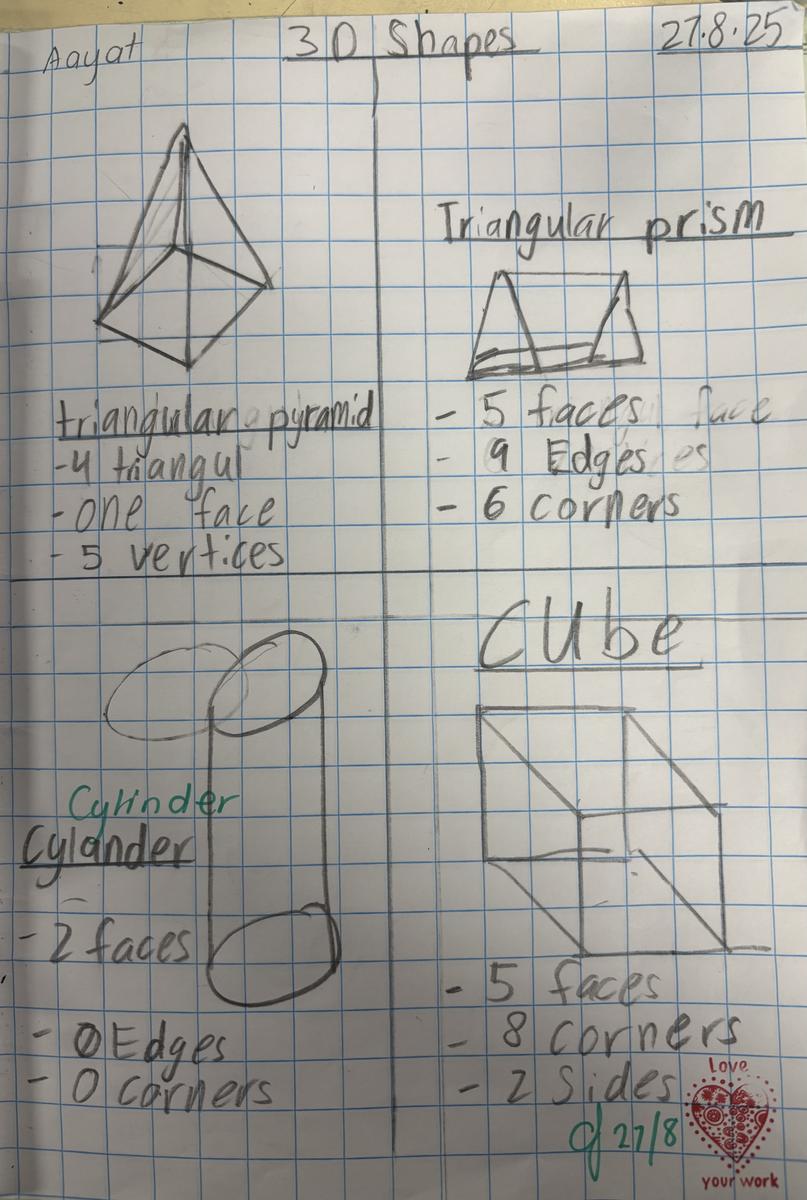 Aayat
3D Shapes
27.8.25
triangular pyramid
-4 triangul
-one face
-5 vertices
Triangular prism
- 5 faces face
- 9 Edges es
- 6 corners
Cylinder
Cylander
- 2 faces
- 0 Edges
- 0 corners
Cube
- 5 faces
- 8 corners
- 2 Sides
27/8
Love
your work